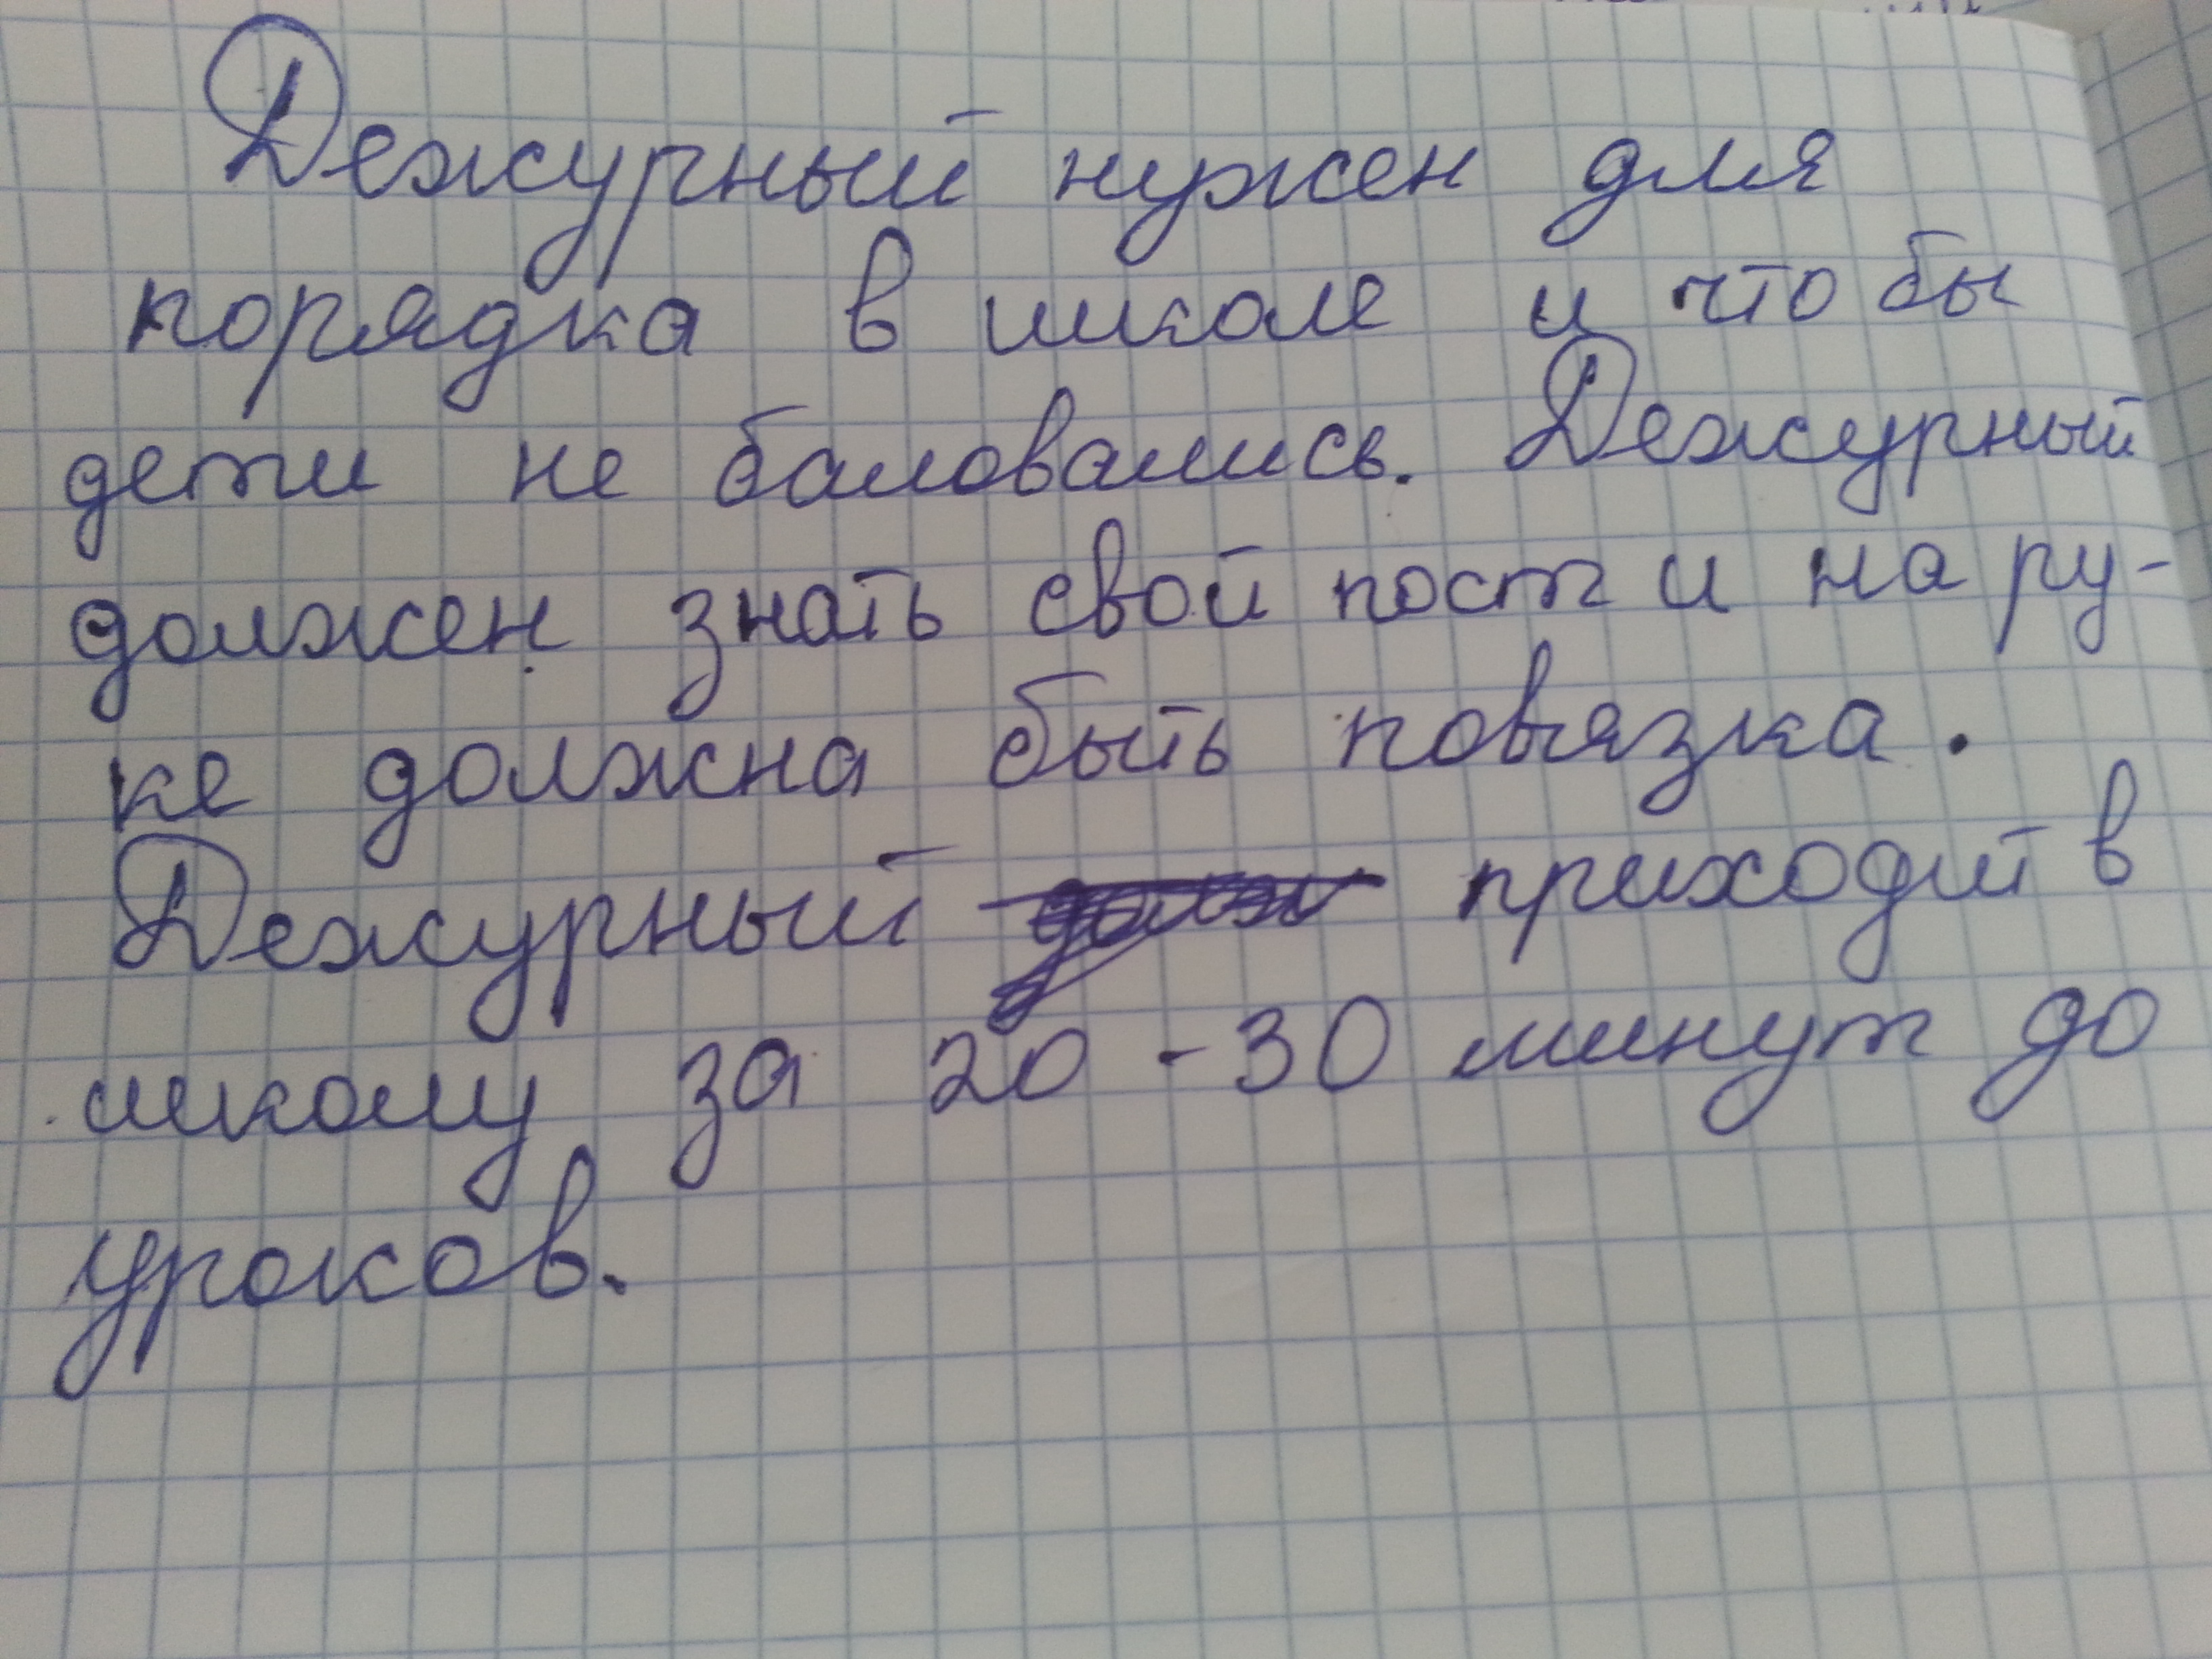 Дежурный нужен для
порядка в школе и что бы
дети не баловались. Дежурный
должен знать свой пост и на ру-
ке должна быть повязка.
Дежурный приходит в
школу за 20 - 30 минут до
уроков.